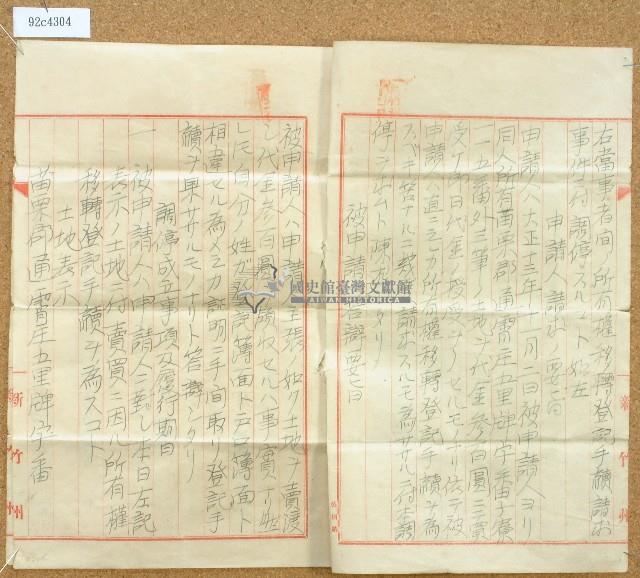 92c4304
右當事者間ノ所有權移轉登記手續請求
事件ニ付調停スルコト如左
申請人請求ノ要旨
申請人ハ大正十三年十一月二日被申請人ヨリ
同人所有苗栗郡通霄庄五里牌字番
一一五番外三筆ノ土地ヲ代金參百圓ニ買
受ケ即日代金ノ授受ヲナシタルモノナリ依テ被
申請人ハ直ニ之レカ所有權移轉登記手續ヲ為
スベキ筈ナルニ數次請求スルモ為ササルニ付本調
停ヲ求ムト陳述シタリ
被申請人答辯ノ要旨
被申請人ハ申請人主張ノ如ク土地ヲ賣渡
シ代金參百圓ヲ領收セルハ事實ナリ然
シ氏自分ノ姓ガ登記簿面ト戶口簿面ト
相違セル為メ之カ証明ニ手間取リ登記手
續ヲ果ササルモノナリト答辯シタリ
調停成立事項及履行期日
一 被申請人ハ申請人ニ對シ本日左記
表示ノ土地ニ付賣買ニ因ル所有權
移轉登記手續ヲ為スコト
土地表示
苗栗郡通霄庄五里牌字番
新竹州
新竹州
國史館臺灣文獻館
TAIWAN HISTORICA